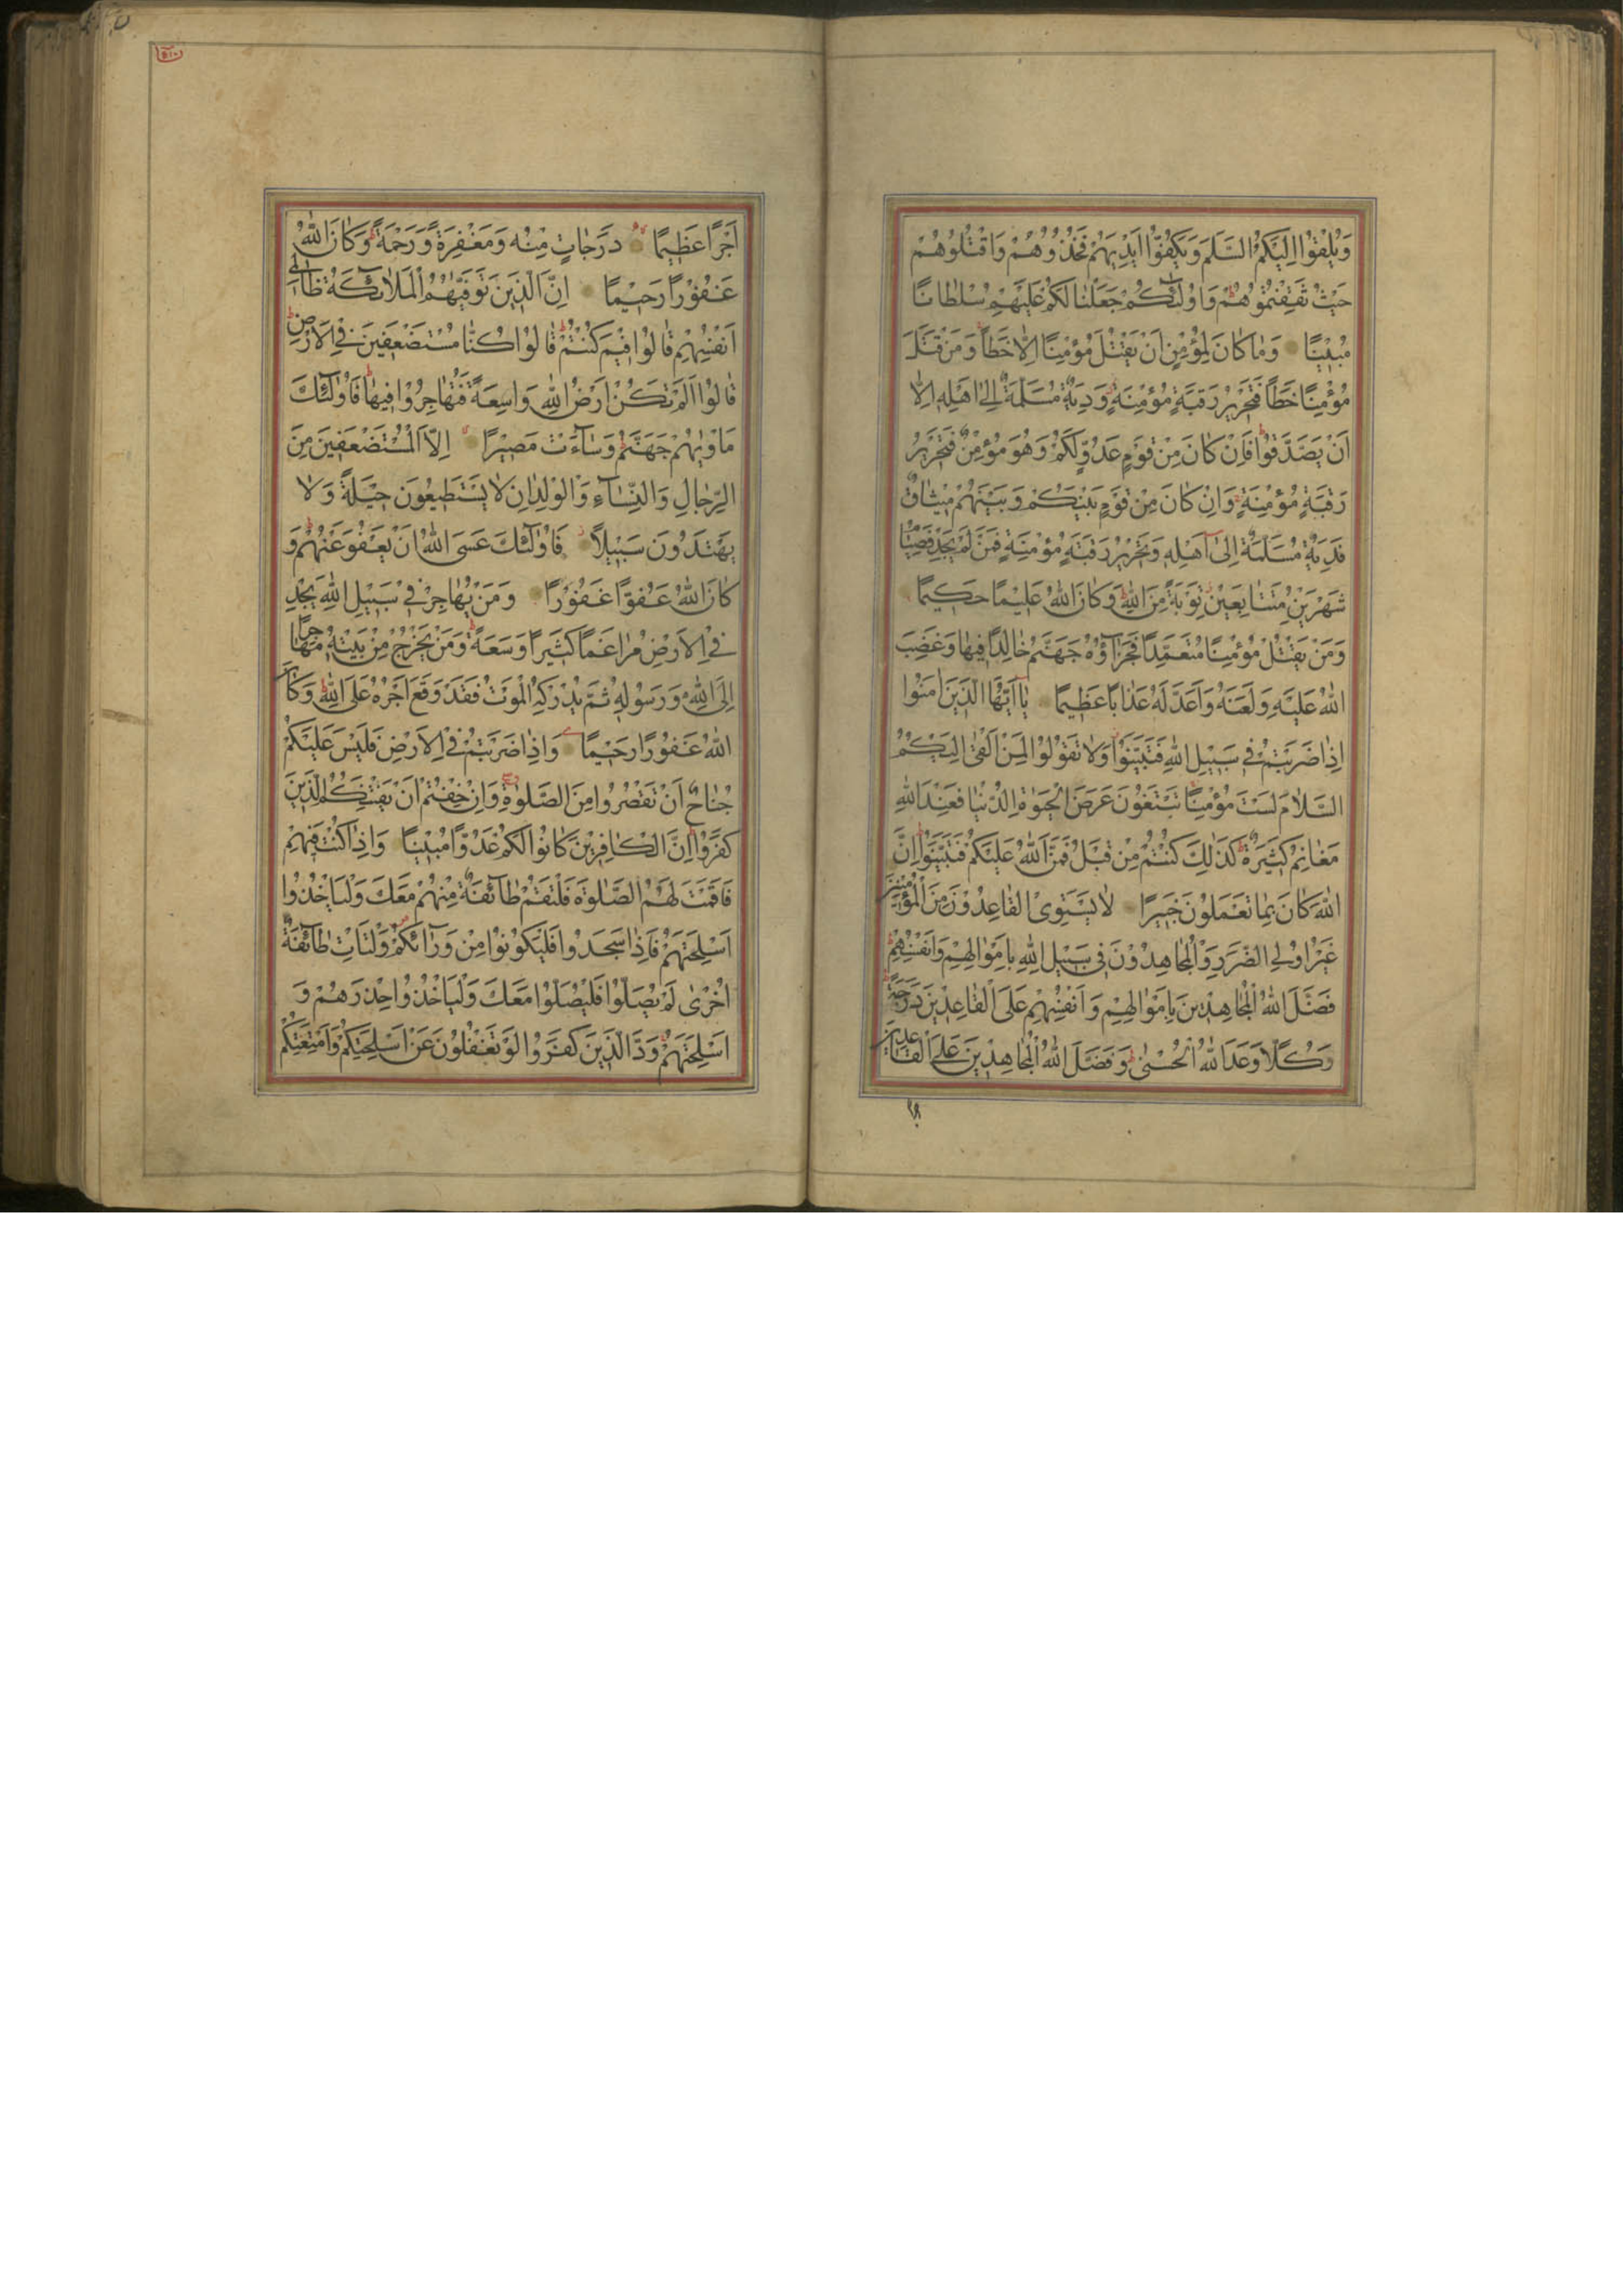 وَيُلْقُوا اِلَيْكُمُ السَّلَمَ وَيَكُفُّوا اَيْدِيَهُمْ فَخُذُوهُمْ وَاقْتُلُوهُمْ
حَيْثُ ثَقِفْتُمُوهُمْ وَاُولٰئِكُمْ جَعَلْنَا لَكُمْ عَلَيْهِمْ سُلْطَانًا
مُبِينًا وَمَا كَانَ لِمُؤْمِنٍ اَنْ يَقْتُلَ مُؤْمِنًا اِلَّا خَطَأً وَمَنْ قَتَلَ
مُؤْمِنًا خَطَأً فَتَحْرِيرُ رَقَبَةٍ مُؤْمِنَةٍ وَدِيَةٌ مُسَلَّمَةٌ اِلٰى اَهْلِهِ اِلَّا
اَنْ يَصَّدَّقُوا فَاِنْ كَانَ مِنْ قَوْمٍ عَدُوٍّ لَكُمْ وَهُوَ مُؤْمِنٌ فَتَحْرِيرُ
رَقَبَةٍ مُؤْمِنَةٍ وَاِنْ كَانَ مِنْ قَوْمٍ بَيْنَكُمْ وَبَيْنَهُمْ مِيثَاقٌ
فَدِيَةٌ مُسَلَّمَةٌ اِلٰى اَهْلِهِ وَتَحْرِيرُ رَقَبَةٍ مُؤْمِنَةٍ فَمَنْ لَمْ يَجِدْ فَصِيَامُ
شَهْرَيْنِ مُتَتَابِعَيْنِ تَوْبَةً مِنَ اللّٰهِ وَكَانَ اللّٰهُ عَلِيمًا حَكِيمًا
وَمَنْ يَقْتُلْ مُؤْمِنًا مُتَعَمِّدًا فَجَزَاؤُهُ جَهَنَّمُ خَالِدًا فِيهَا وَغَضِبَ
اللّٰهُ عَلَيْهِ وَلَعَنَهُ وَاَعَدَّ لَهُ عَذَابًا عَظِيمًا يَا اَيُّهَا الَّذِينَ اٰمَنُوا
اِذَا ضَرَبْتُمْ فِي سَبِيلِ اللّٰهِ فَتَبَيَّنُوا وَلَا تَقُولُوا لِمَنْ اَلْقٰى اِلَيْكُمُ
السَّلَامَ لَسْتَ مُؤْمِنًا تَبْتَغُونَ عَرَضَ الْحَيٰوةِ الدُّنْيَا فَعِنْدَ اللّٰهِ
مَغَانِمُ كَثِيرَةٌ كَذٰلِكَ كُنْتُمْ مِنْ قَبْلُ فَمَنَّ اللّٰهُ عَلَيْكُمْ فَتَبَيَّنُوا اِنَّ
اللّٰهَ كَانَ بِمَا تَعْمَلُونَ خَبِيرًا لَا يَسْتَوِى الْقَاعِدُونَ مِنَ الْمُؤْمِنِينَ
غَيْرُ اُولِي الضَّرَرِ وَالْمُجَاهِدُونَ فِي سَبِيلِ اللّٰهِ بِاَمْوَالِهِمْ وَاَنْفُسِهِمْ
فَضَّلَ اللّٰهُ الْمُجَاهِدِينَ بِاَمْوَالِهِمْ وَاَنْفُسِهِمْ عَلَى الْقَاعِدِينَ دَرَجَةً
وَكُلًّا وَعَدَ اللّٰهُ الْحُسْنٰى وَفَضَّلَ اللّٰهُ الْمُجَاهِدِينَ عَلَى الْقَاعِدِينَ
اَجْرًا عَظِيمًا دَرَجَاتٍ مِنْهُ وَمَغْفِرَةً وَرَحْمَةً وَكَانَ اللّٰهُ
غَفُورًا رَحِيمًا اِنَّ الَّذِينَ تَوَفّٰيهُمُ الْمَلَائِكَةُ ظَالِمِي
اَنْفُسِهِمْ قَالُوا فِيمَ كُنْتُمْ قَالُوا كُنَّا مُسْتَضْعَفِينَ فِي الْاَرْضِ
قَالُوا اَلَمْ تَكُنْ اَرْضُ اللّٰهِ وَاسِعَةً فَتُهَاجِرُوا فِيهَا فَاُولٰئِكَ
مَاْوٰيهُمْ جَهَنَّمُ وَسَاءَتْ مَصِيرًا اِلَّا الْمُسْتَضْعَفِينَ مِنَ
الرِّجَالِ وَالنِّسَاءِ وَالْوِلْدَانِ لَا يَسْتَطِيعُونَ حِيلَةً وَلَا
يَهْتَدُونَ سَبِيلًا فَاُولٰئِكَ عَسَى اللّٰهُ اَنْ يَعْفُوَ عَنْهُمْ وَ
كَانَ اللّٰهُ عَفُوًّا غَفُورًا وَمَنْ يُهَاجِرْ فِي سَبِيلِ اللّٰهِ يَجِدْ
فِي الْاَرْضِ مُرَاغَمًا كَثِيرًا وَسَعَةً وَمَنْ يَخْرُجْ مِنْ بَيْتِهِ مُهَاجِرًا
اِلَى اللّٰهِ وَرَسُولِهِ ثُمَّ يُدْرِكْهُ الْمَوْتُ فَقَدْ وَقَعَ اَجْرُهُ عَلَى اللّٰهِ وَكَانَ
اللّٰهُ غَفُورًا رَحِيمًا وَاِذَا ضَرَبْتُمْ فِي الْاَرْضِ فَلَيْسَ عَلَيْكُمْ
جُنَاحٌ اَنْ تَقْصُرُوا مِنَ الصَّلٰوةِ وَاِنْ خِفْتُمْ اَنْ يَفْتِنَكُمُ الَّذِينَ
كَفَرُوا اِنَّ الْكَافِرِينَ كَانُوا لَكُمْ عَدُوًّا مُبِينًا وَاِذَا كُنْتَ فِيهِمْ
فَاَقَمْتَ لَهُمُ الصَّلٰوةَ فَلْتَقُمْ طَائِفَةٌ مِنْهُمْ مَعَكَ وَلْيَاْخُذُوا
اَسْلِحَتَهُمْ فَاِذَا سَجَدُوا فَلْيَكُونُوا مِنْ وَرَائِكُمْ وَلْتَاْتِ طَائِفَةٌ
اُخْرٰى لَمْ يُصَلُّوا فَلْيُصَلُّوا مَعَكَ وَلْيَاْخُذُوا حِذْرَهُمْ وَ
اَسْلِحَتَهُمْ وَدَّ الَّذِينَ كَفَرُوا لَوْ تَغْفُلُونَ عَنْ اَسْلِحَتِكُمْ وَاَمْتِعَتِكُمْ